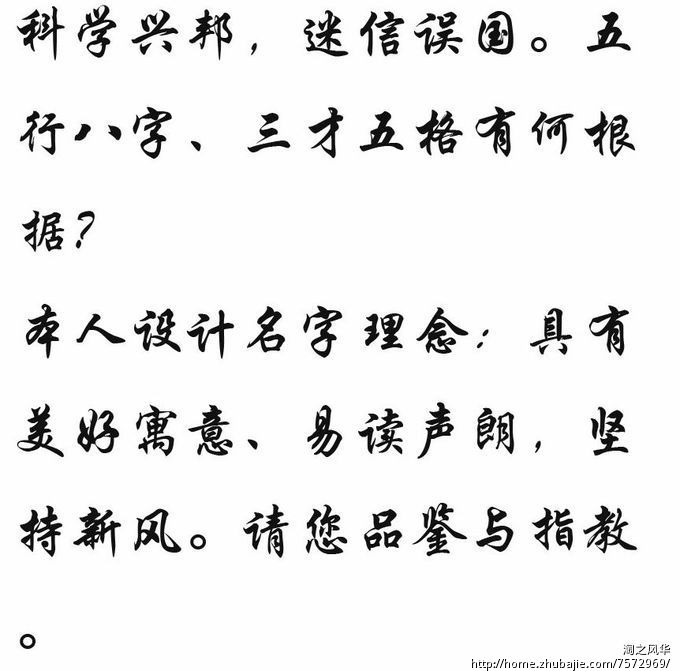 科学兴邦，迷信误国。五
行八字、三才五格有何根
据？
本人设计名字理念：具有
美好寓意、易读声朗，坚
持新风。请您品鉴与指教
。
澜之风华
http://home.zhubajie.com/7572969/